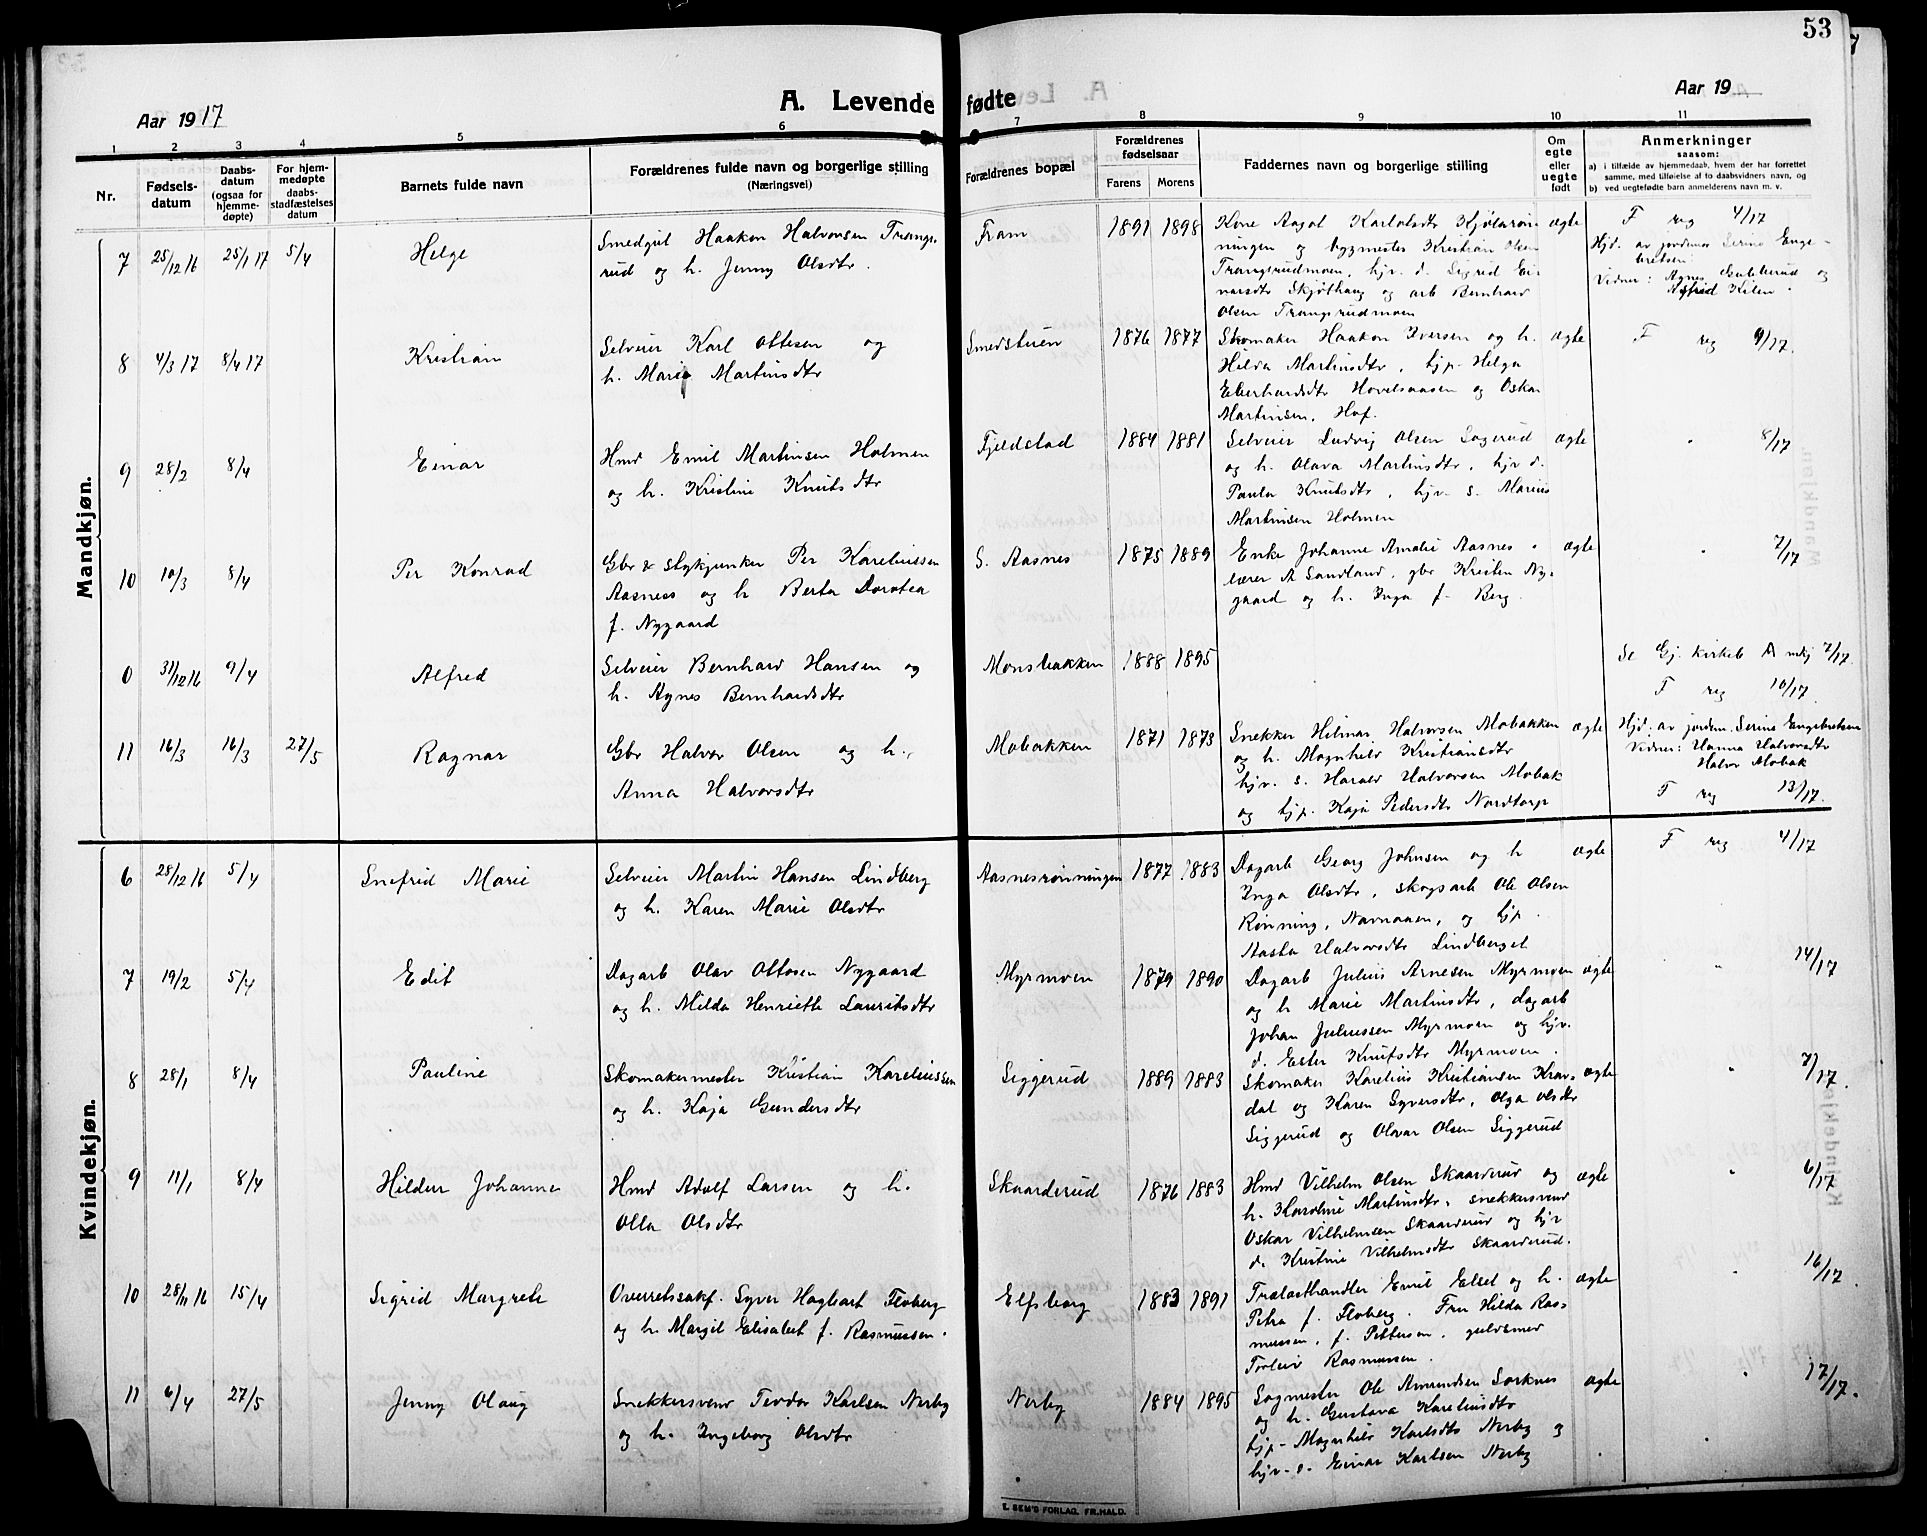 53
A. Levende fødte
Aar 1917
Aar 19
1 2 3 4 5 6 7 8 9 10 11
Nr.
Fødsels-
datum
Daabs-
datum
(ogsaa for
hjemme-
døpte)
For hjem-
medøpte
daabs-
stadfæstelses
datum
Barnets fulde navn
Forældrenes fulde navn og borgerlige stilling
(Næringsvei)
Forældrenes bopæl
Forældrenes
fødselsaar
Farens Morens
Faddernes navn og borgerlige stilling
Om
egte
eller
uegte
født
Anmerkninger
saasom:
a) i tilfælde av hjemmedaab, hvem der har forrettet
samme, med tilføielse af to daabsvidners navn, og
b) ved uegtefødte barn anmelderens navn m. v.
Mandkjøn.
7 25/12 16 25/1 17 5/4 Helge
Smedgut Haakon Halvorsen Trangs-
rud og h. Jenny Olsdtr.
Fram 1891 1898
Kone Aagot Karlsdtr Kjølarøn-
ningen og bygmester Kristian Olsen
Trangsrudmoen, hjv. d. Sigrid Ei-
narsdtr Skjøthaug og arb Bernhard
Olsen Trangsrudmoen
ægte
F reg 4/17
Hjd. av jordmor Serine Enge-
bretsen
Vidner: Agnes Gubberud og
Astrid Kilen.
8 4/3 17 8/4 17 Kristian
Selveier Karl Ottesen og
h. Marie Martinsdtr
Smedstuen 1876 1877
Skomaker Haakon Iversen og h.
Hilda Martinsdtr, hjp. Helga
Eberhardsdtr Hovelsaasen og Oskar
Martinsen, Hof.
ægte
F reg 9/17.
9 28/2 8/4 Einar
Hmd Emil Martinsen Holmen
og h. Kristine Knutsdtr
Fjeldstad 1884 1881
Selveier Ludvig Olsen Sagerud
og h. Olava Martinsdtr, hjv d.
Paula Knutsdtr, hjv. s. Marius
Martinsen Holmen
ægte
" 8/17
10 10/3 8/4 Per Konrad
Gbr & slagkjunker Per Kareliussen
Aasnes og h Berta Dorotea
f. Nygaard
S. Aasnes 1875 1889
Enke Johanne Amalie Aasnes,
lærer A Sandland, gbr Kristen Ny-
gaard og h. Inga f. Berg.
ægte
" 7/17
0 31/12 16 9/4 Alfred
Selveier Bernhard Hansen og
h. Agnes Bernhardsdtr
Monsbakken 1888 1895
Se Gj. kirkeb A mkj 7/17.
F reg 10/17.
11 16/3 16/3 27/5 Ragnar
Gbr Halvor Olsen og h.
Anna Halvorsdtr
Mobakken 1871 1873
Snekker Hilmar Halvorsen Mobakken
og h. Magnhild Kristiansdtr
hjv. s. Harald Halvorsen Mobak
og hjp. Kaja Pedersdtr Nordtorp
ægte
Hjd. av jordem. Serine Engebretsen
Vidner: Hanna Halvorsdtr
Halvor Mobak
F reg 13/17.
Kvindekjøn.
6 28/12 16 5/4 Snefrid Marie
Selveier Martin Hansen Lindberg
og h. Karen Marie Olsdtr
Aasnesrønningen 1877 1883
Dagarb Georg Johnsen og h
Inga Olsdtr, skogsarb Ole Olsen
Rønning, Navnaaen, og hjp.
Aasta Halvorsdtr Lindberget
ægte
F reg 4/17
7 19/2 5/4 Edit
Dagarb Olav Ottosen Nygaard
og h. Milda Henriette Lauritsdtr
Myrmoen 1879 1890
Dagarb Julius Arnesen Myrmoen
og h Marie Martinsdtr, dagarb
Johan Juliussen Myrmoen og hjv.
d. Ester Knutsdtr Myrmoen.
ægte
" 14/17
8 28/1 8/4 Pauline
Skomakermester Kristian Kareliussen
og h. Kaja Gundersdtr
Siggerud 1889 1883
Skomaker Karelius Kristiansen Krav-
dal og Karen Syversdtr, Olga Olsdtr
Siggerud og Olvar Olsen Siggerud
ægte
" 7/17.
9 11/1 8/4 Hildur Johanne
Hmd Adolf Larsen og h.
Olla Olsdtr
Skaarderud 1876 1883
Hmd Vilhelm Olsen Skaarderud og
h. Karoline Martinsdtr, snekkersvend
Oskar Vilhelmsen Skaarderud og hjv
d. Kristine Vilhelmsdtr Skaarderud.
ægte
" 6/17
10 28/11 16 15/4 Sigrid Margrete
Overretssakf. Syver Hagbart Floberg
og h. Margit Elisabet f. Rasmussen.
Elfsborg 1883 1891
Trælasthandler Emil Elset og h.
Petra f. Floberg. Fru Hilda Ras-
mussen, f. Pettersen, guldsmed
Torleiv Rasmussen.
ægte
" 16/17.
11 6/4 27/5 Jenny Olaug
Snekkersvend Teodor Karlsen Nerby
og h. Ingeborg Olsdtr
Nerby 1884 1895
Sagmester Ole Amundsen Sorknes
og h. Gustava Kareliusdtr
hjp. Magnhild Karlsdtr Nerby og
hjv. s. Einar Karlsen Nerby
ægte
" 17/17.
E. SEM'S FORLAG. FR.HALD.